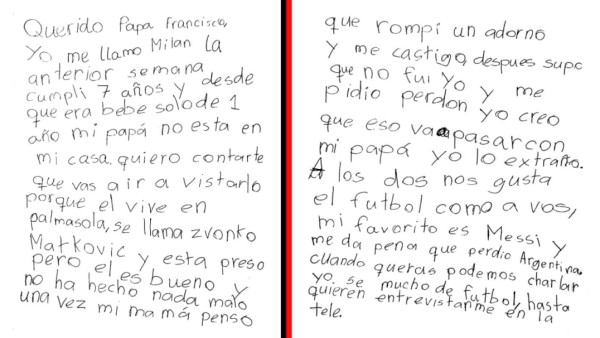 Querido Papa Francisco,
Yo, me llamo Milan la
anterior semana
cumpli 7 años y desde
que era bebe solo de 1
año mi papá no esta en
mi casa. quiero contarte
que vas a ir a vistarlo
porque el vive en
palmasola, se llama zvonko
Matkovic y esta preso
pero el es bueno y
no ha hecho nada malo
una vez mi mamá penso
que rompi un adorno
y me castigo, despues supo
que no fui yo y me
pidio perdon yo creo
que eso va a pasar con
mi papá yo lo extraño.
A los dos nos gusta
el futbol como a vos,
mi favorito es Messi y
me da pena que perdio Argentina.
cuando queras podemos charlar
yo se mucho de futbol, hasta
quieren entrevistarme en la
tele.